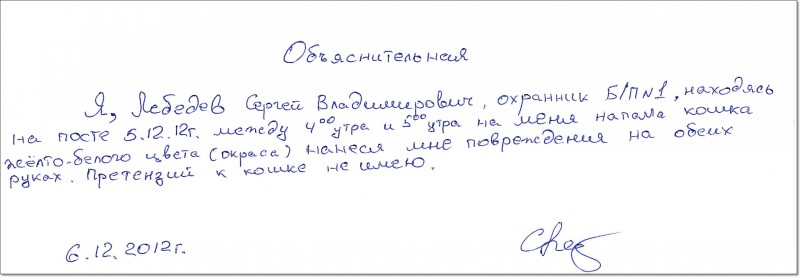 Объяснительная
Я, Лебедев Сергей Владимирович, охранник Б/П№1, находясь
на посте 5.12.12г. между 4⁰⁰ утра и 5⁰⁰ утра на меня напала кошка
жёлто-белого цвета (окраса) нанеся мне повреждения на обеих
руках. Претензий к кошке не имею.
6.12.2012г.